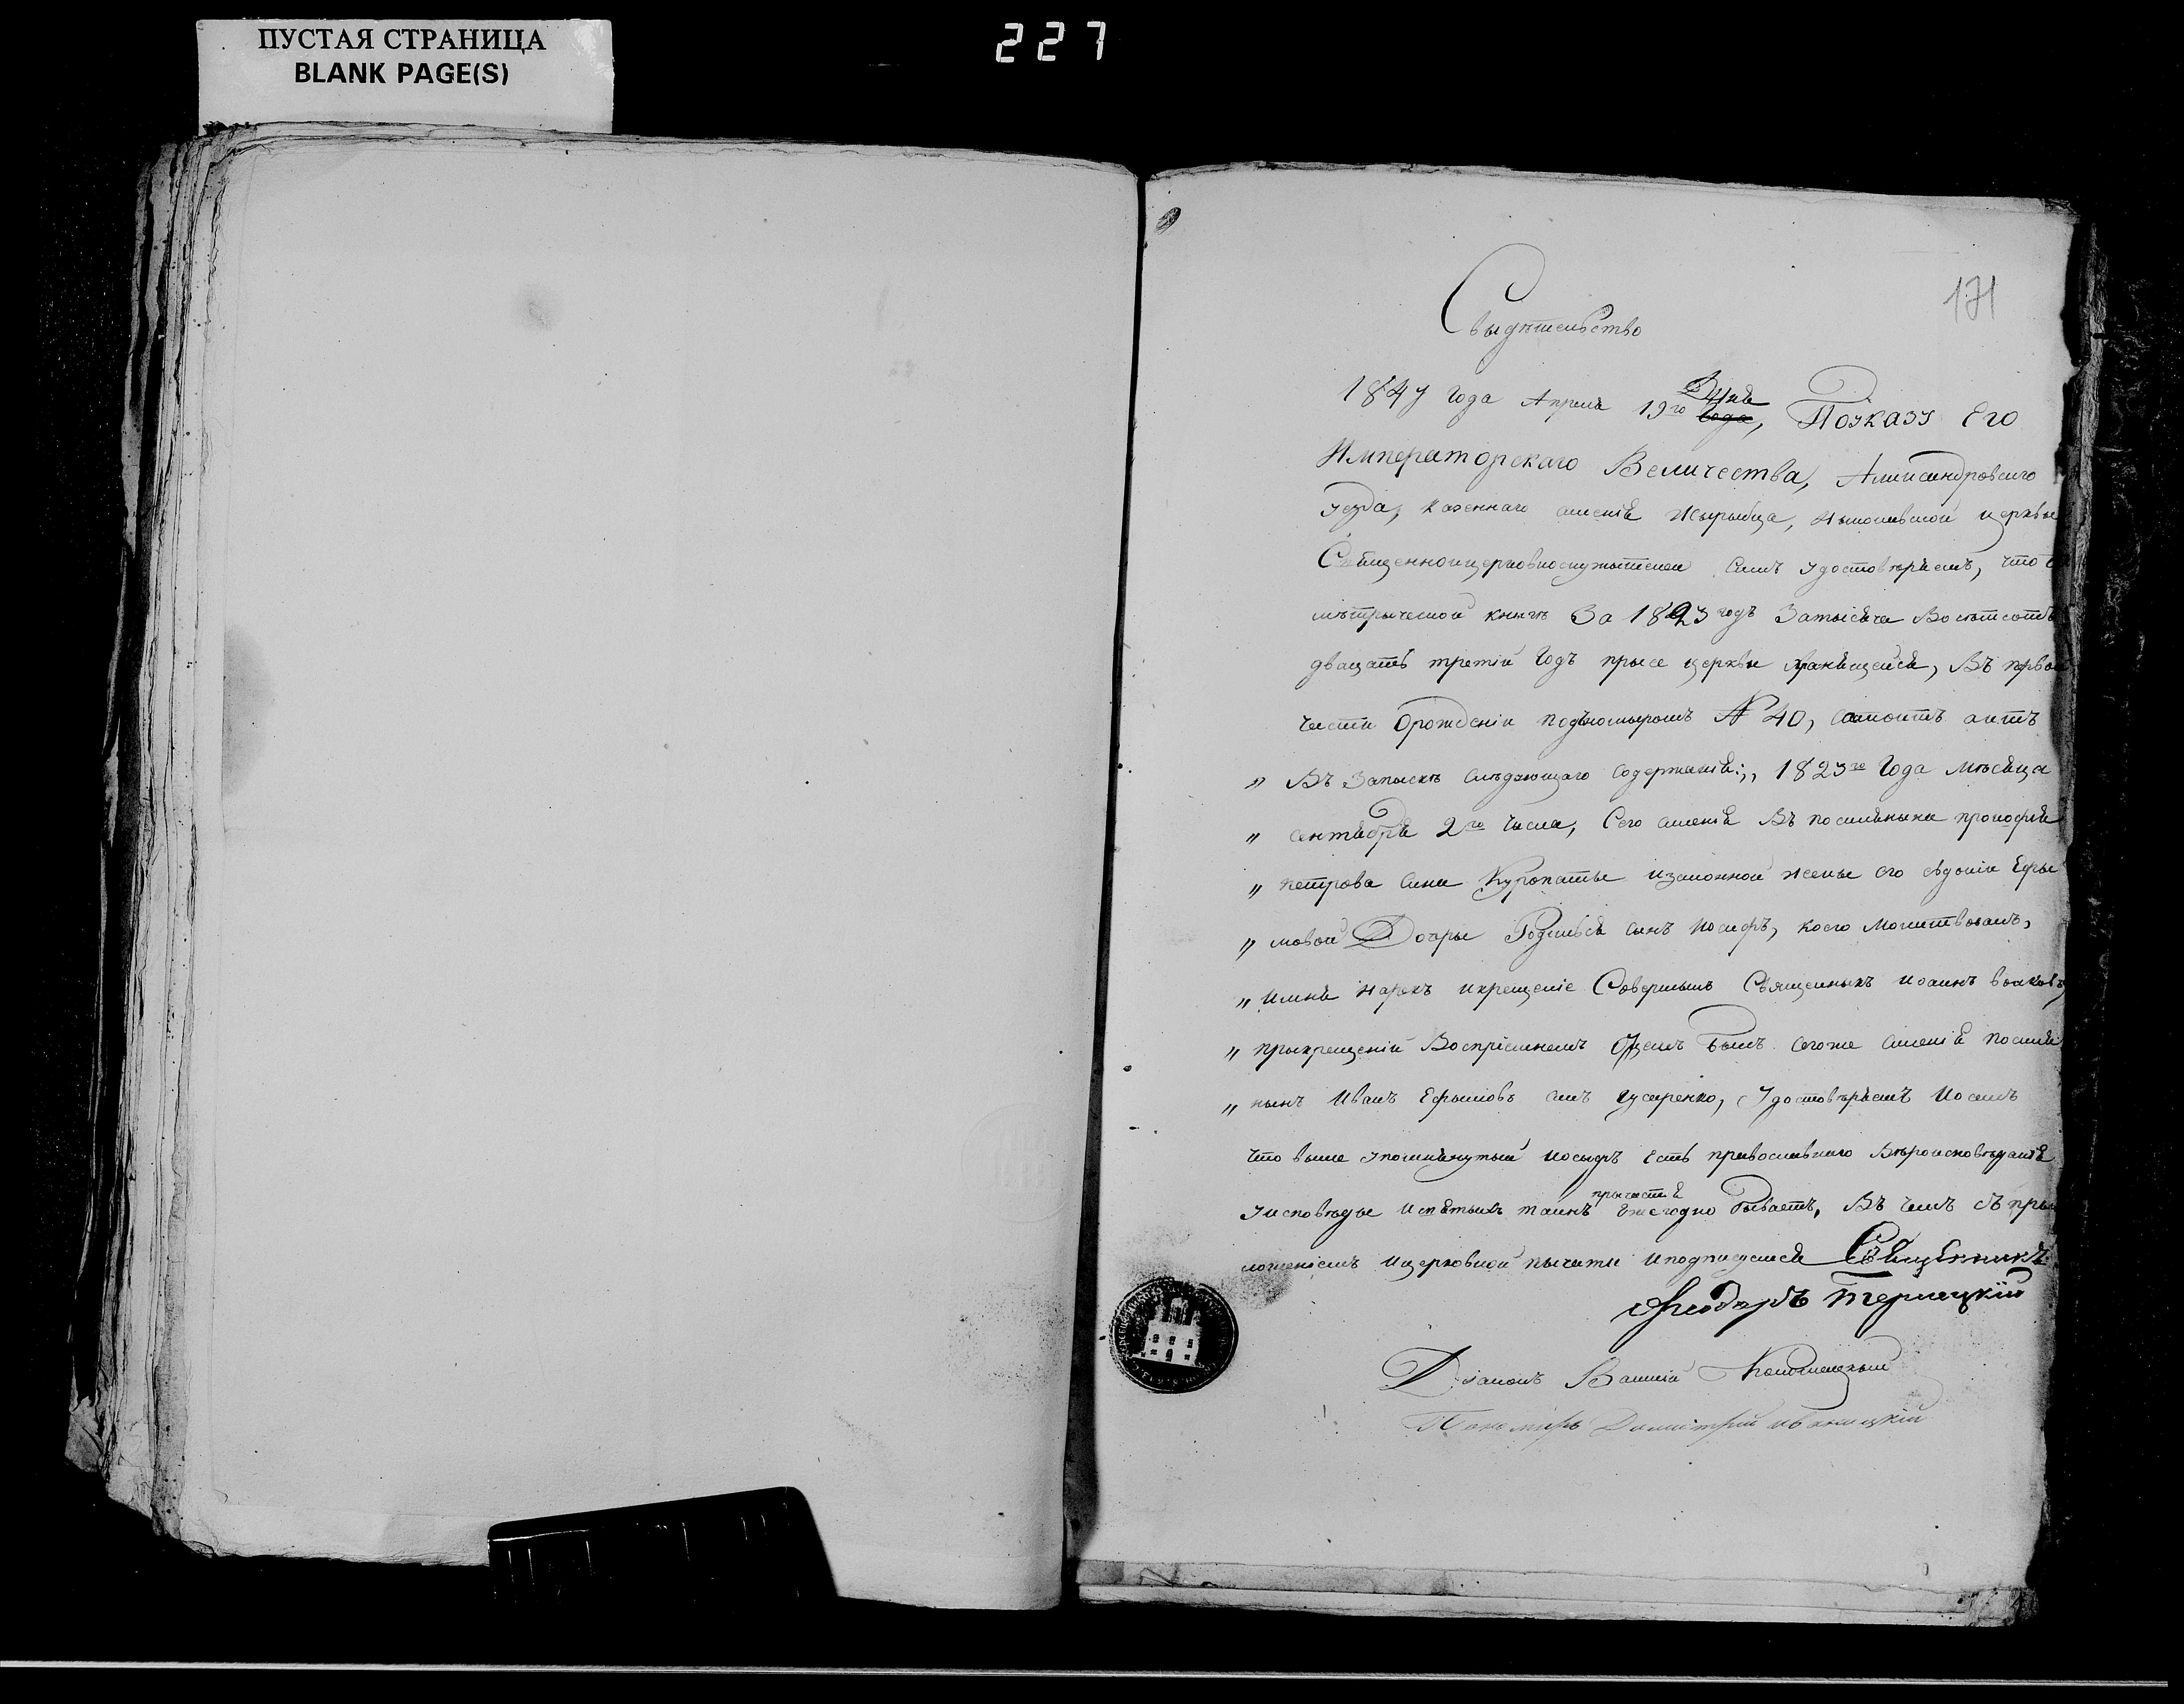 ПУСТАЯ СТРАНИЦА
BLANK PAGE(S)
227
171
Свыдѣтельство
1847 года Апреля 19го Дня Года, Поуказу Его
Императорскаго Величества, Алисандровсого
уезда, казенного Николаевской церквы
Священноицерковнослужытелеи симъ удостовѣряемъ, что
мѣтрыческой кныгѣ За 1823 годъ Затысяча Восѣмсотъ
двацать третій Годъ прысе церквы хранящейся, Въ первой
части Орожденіи подъномыромъ № 40, состоитъ актъ
„ Въ Запыскѣ слѣдующаго содержанія:,, 1823го Года Мѣсяца
„ сентября 2го Числа, Сего селенія Въ поселянына прокофія
„ петрова сина Куропаты изаконной жены его евдокіи Ефы
„ мовой Дочры Родылься сынъ Иосифъ, коего Молитвовалъ,
„ имня нарекъ икрещеніе Совершылъ Священныкъ иоанъ
„ прыкрещеніи Воспріемнемъ Отцемъ былъ сегоже селенія поселя
„ нынъ Иванъ Ефымовъ синъ удостовѣряемъ
что выше упомянутый иосыфъ есть православного Вѣроисповѣданія
уисповѣды исвятыхъ таинъ прычастія Ежегодно бываетъ, Въ чемъ съ пры
ложеніемъ ицерковной пычаты иподписуемся Священникъ
Терлецкій
Діаконъ Василій
Пономарь Димитрій